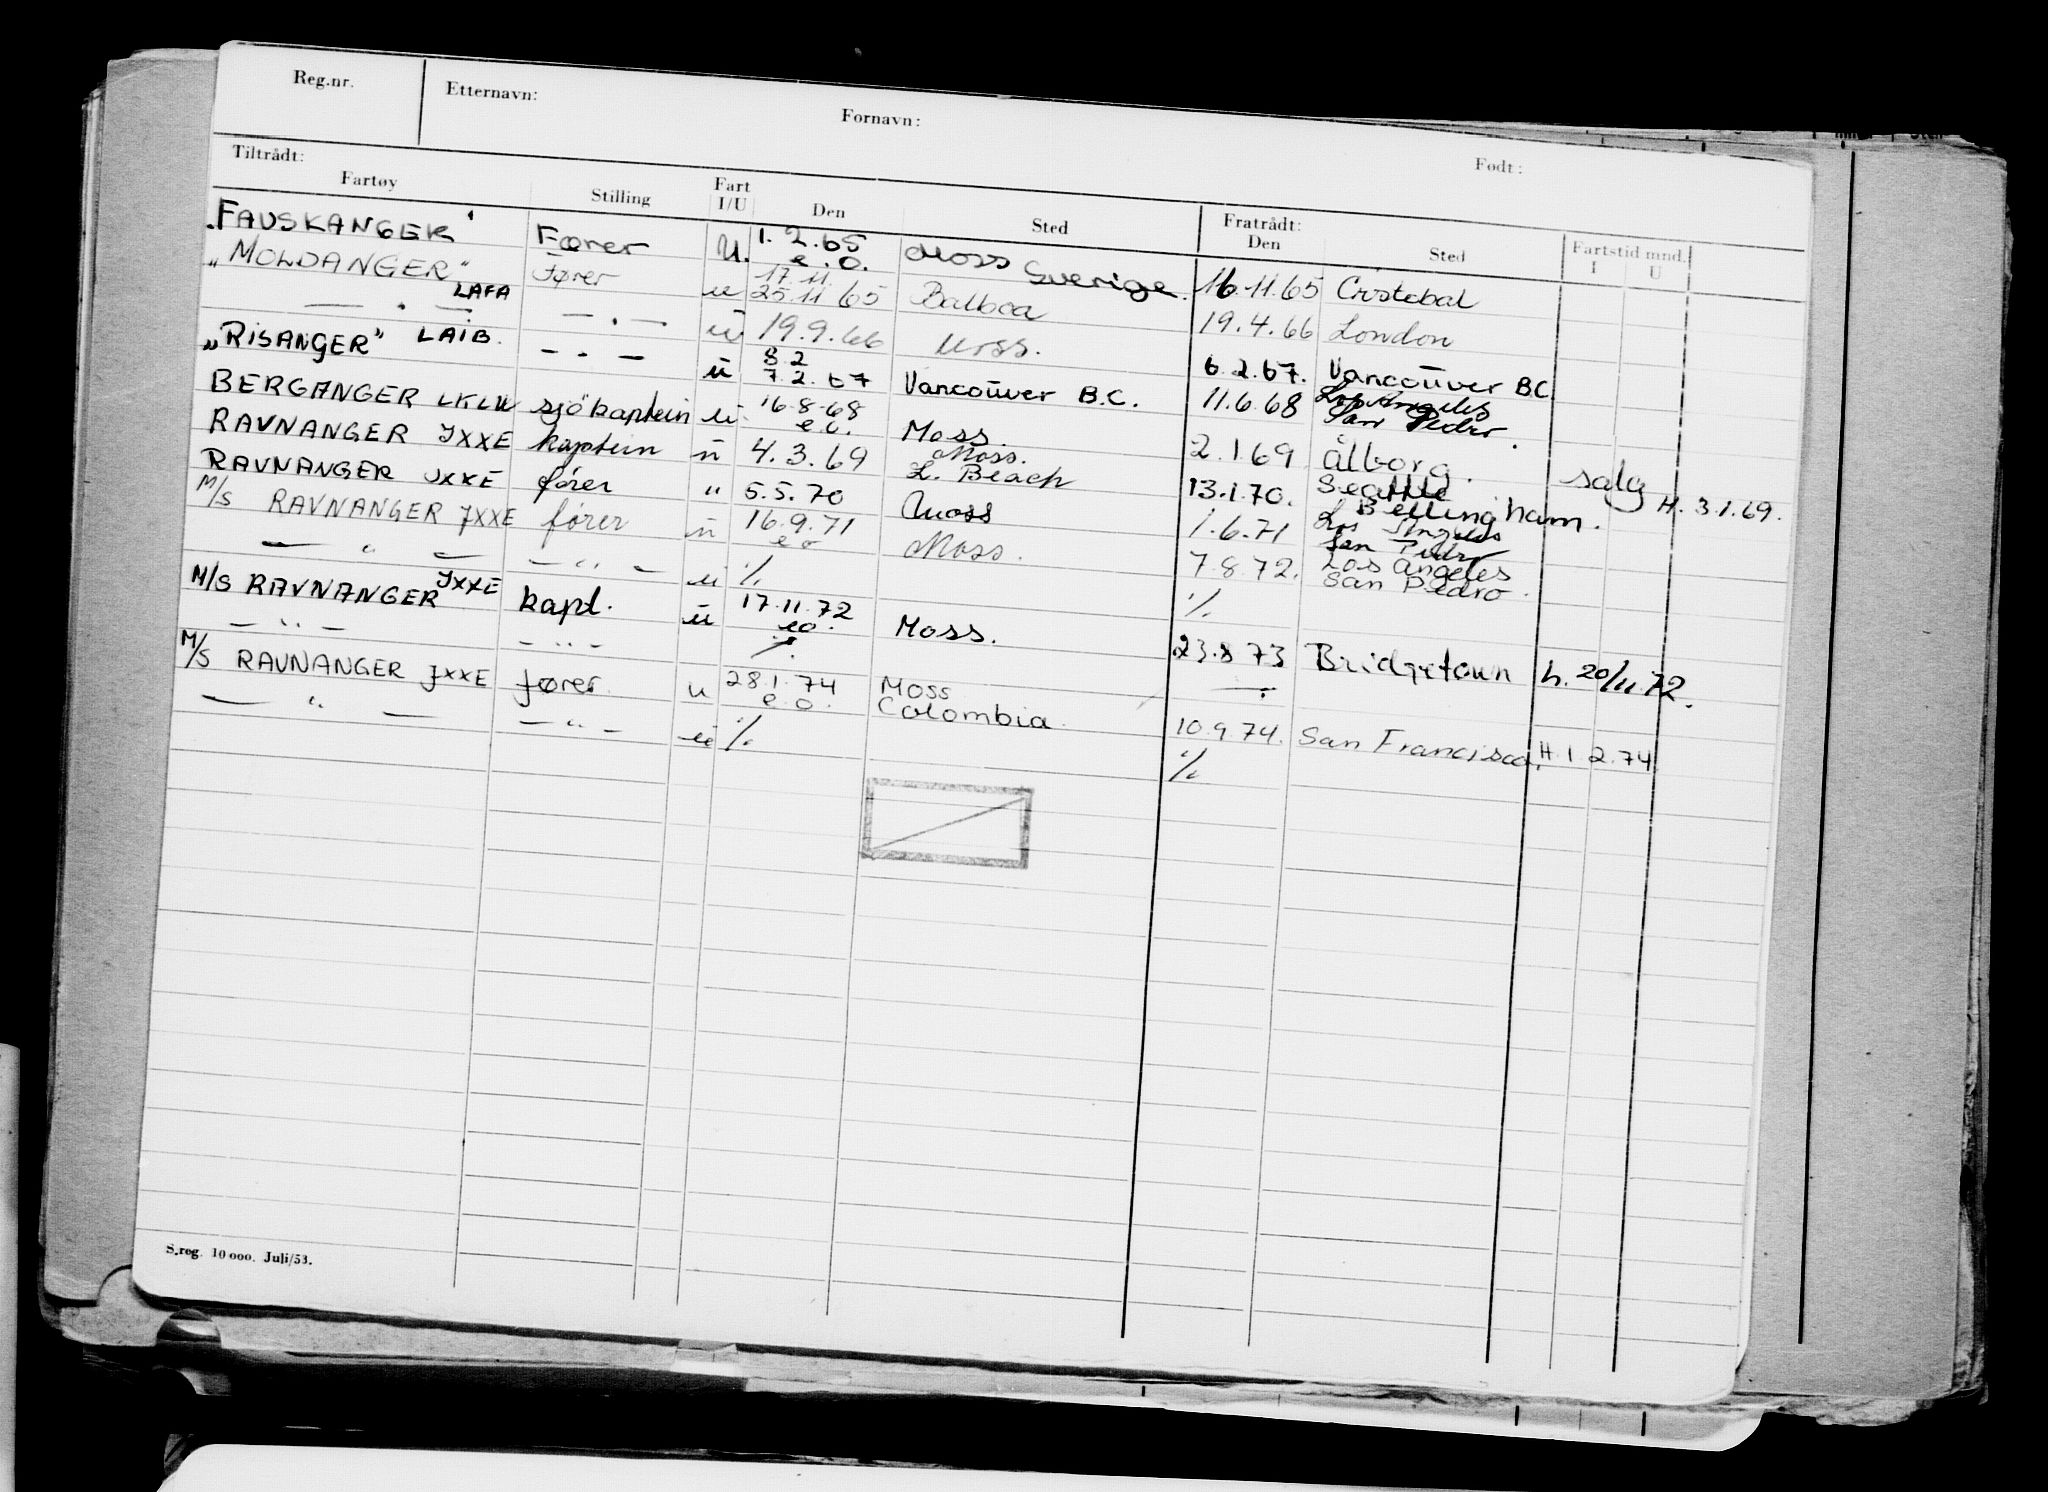 Reg.nr. Etternavn: Fornavn: Født:
Tiltrådt: Fratrådt:
Fartøy Stilling Fart I/U Den Sted Den Sted Fartstid mnd. I U
"FAUSKANGER" Fører U. 1.2.65 e.o. Moss Sverige. 16.11.65 Cristobal
"MOLDANGER" LAFA Fører u 17.11 25.11.65 Balboa 19.4.66 London
— " — — " — u 19.9.66 Moss. 6.2.67. Vancouver BC
"RISANGER" LAIB. — " — u 8.2 7.2.67 Vancouver B.C. 11.6.68 Los Angeles San Pedro.
BERGANGER LKLW sjökaptein u 16.8.68 e.o. Moss. 2.1.69 Ålborg. salg H. 3.1.69.
RAVNANGER JXXE kaptein u 4.3.69 Moss. L. Beach 13.1.70. Seattle Bellingham.
RAVNANGER JXXE fører " 5.5.70 Moss 1.6.71 Los Angeles San Pedro
M/S RAVNANGER JXXE fører u 16.9.71 eo Moss. 7.8.72. Los Angeles San Pedro.
— " — — " — u % %
M/S RAVNANGER JXXE kapt. u 17.11.72 eo. Moss. 23.8.73 Bridgetown h. 20/11.72.
— " — — " —
M/S RAVNANGER JXXE fører u 28.1.74 e.o. Moss Colombia. 10.9.74. San Francisco. H. 1 2.74
— " — — " — u % %
S.reg. 10 000. Juli/53.